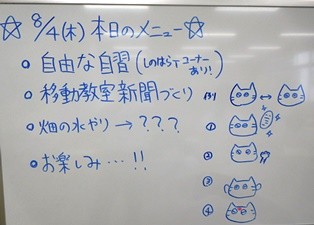 ☆ 8/4(木) 本日のメニュー☆
• 自由な自習 (しのはらTコーナーあり!)
• 移動教室新聞づくり
• 畑の水やり → ? ? ?
• お楽しみ…!!
①
②
③
④